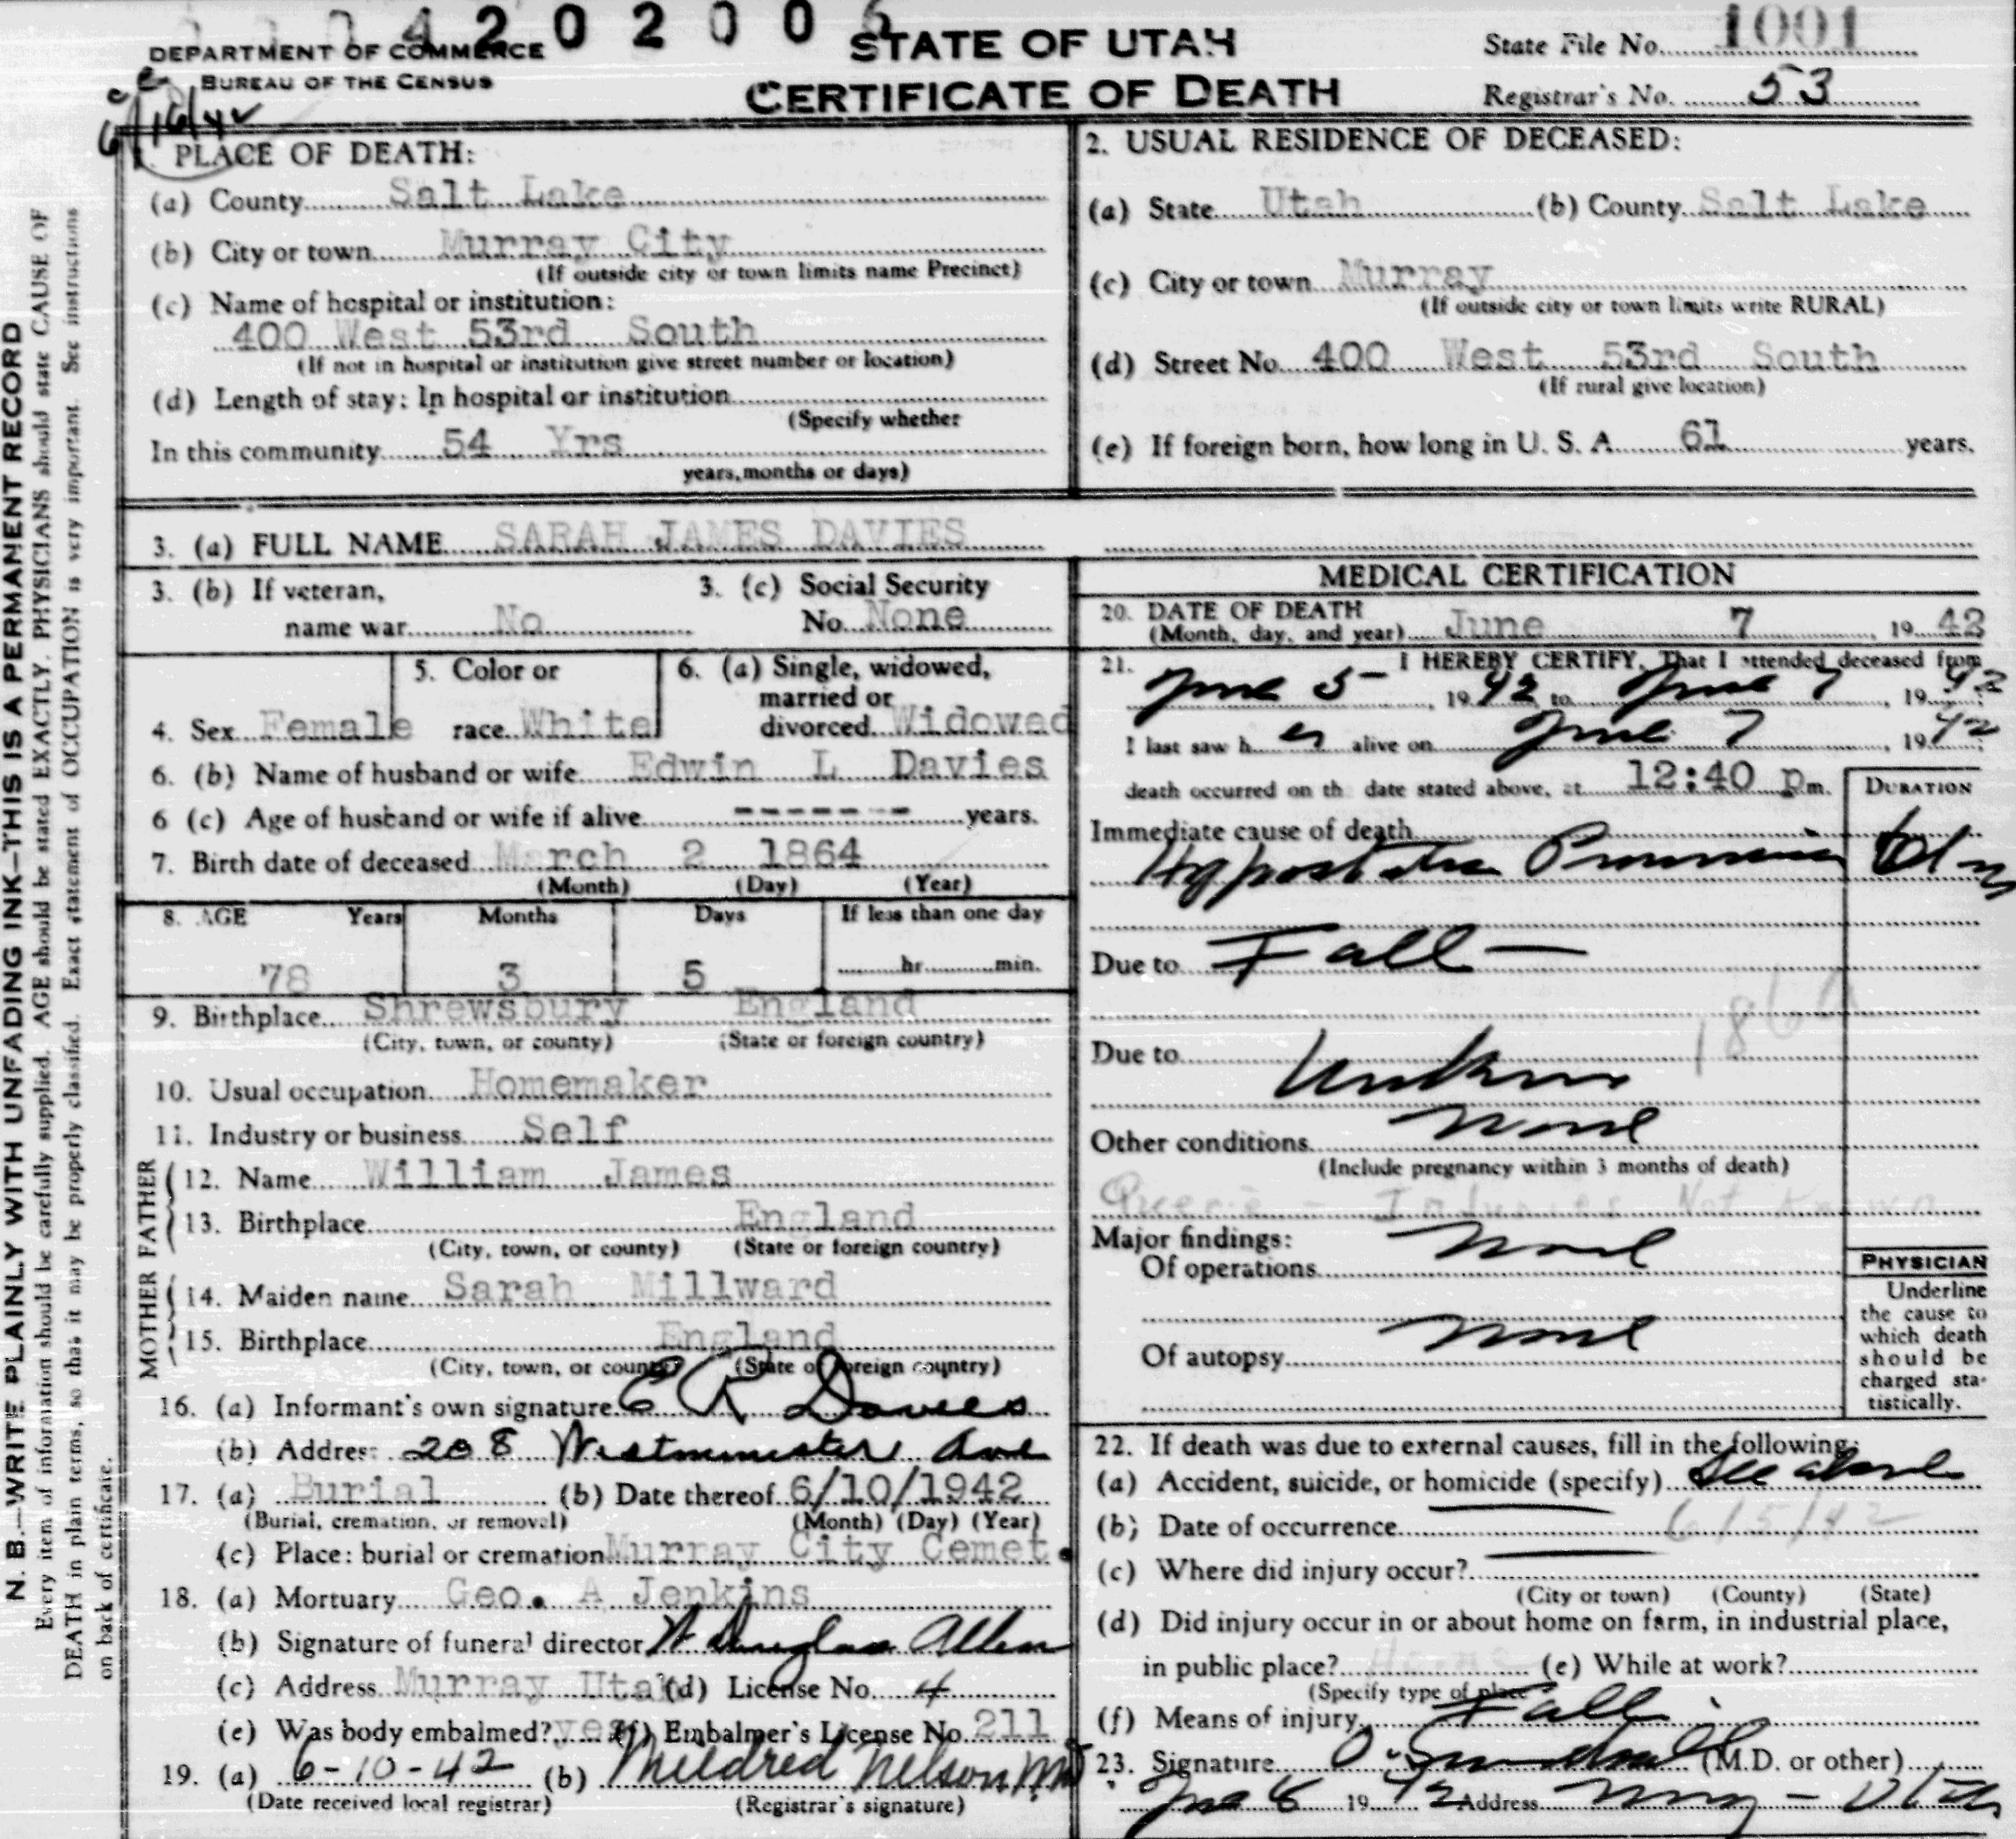 4 2 0 2 0 0
DEPARTMENT OF COMMERCE
BUREAU OF THE CENSUS
6/16/42
STATE OF UTAH
CERTIFICATE OF DEATH
State File No. 1001
Registrar's No. 53
N. B.—WRITE PLAINLY WITH UNFADING INK—THIS IS A PERMANENT RECORD
Every item of information should be carefully supplied. AGE should be stated EXACTLY. PHYSICIANS should state CAUSE OF
DEATH in plain terms, so that it may be properly classified. Exact statement of OCCUPATION is very important. See instructions
on back of certificate.
1. PLACE OF DEATH:
(a) County Salt Lake
(b) City or town Murray City
(If outside city or town limits name Precinct)
(c) Name of hospital or institution:
400 West 53rd South
(If not in hospital or institution give street number or location)
(d) Length of stay: In hospital or institution
(Specify whether
In this community 54 Yrs
years, months or days)
2. USUAL RESIDENCE OF DECEASED:
(a) State Utah (b) County Salt Lake
(c) City or town Murray
(If outside city or town limits write RURAL)
(d) Street No. 400 West 53rd South
(If rural give location)
(e) If foreign born, how long in U. S. A. 61 years.
3. (a) FULL NAME SARAH JAMES DAVIES
3. (b) If veteran,
name war No
3. (c) Social Security
No. None
4. Sex Female
5. Color or
race White
6. (a) Single, widowed,
married or
divorced Widowed
6. (b) Name of husband or wife Edwin L Davies
6 (c) Age of husband or wife if alive ------- years.
7. Birth date of deceased March 2 1864
(Month) (Day) (Year)
8. AGE Years Months Days If less than one day
78 3 5 hr. min.
9. Birthplace Shrewsbury England
(City, town, or county) (State or foreign country)
10. Usual occupation Homemaker
11. Industry or business Self
FATHER
12. Name William James
13. Birthplace England
(City, town, or county) (State or foreign country)
MOTHER
14. Maiden name Sarah Millward
15. Birthplace England
(City, town, or county) (State or foreign country)
16. (a) Informant's own signature E R Davies
(b) Address 208 Westminster Ave
17. (a) Burial (b) Date thereof 6/10/1942
(Burial, cremation, or removal) (Month) (Day) (Year)
(c) Place: burial or cremation Murray City Cemet.
18. (a) Mortuary Geo. A Jenkins
(b) Signature of funeral director Douglas Allen
(c) Address Murray Utah (d) License No. 4
(e) Was body embalmed? yes (f) Embalmer's License No. 211
19. (a) 6-10-42 (b) Mildred Nelson
(Date received local registrar) (Registrar's signature)
MEDICAL CERTIFICATION
20. DATE OF DEATH
(Month, day, and year) June 7, 19 42
21. I HEREBY CERTIFY, That I attended deceased from
June 5, 19 42 to June 7, 19 42
I last saw h er alive on June 7, 19 42
death occurred on the date stated above, at 12:40 pm.
DURATION
Immediate cause of death
Hypostatic Pneumonia
Due to Fall —
Due to Unknown
186
Other conditions None
(Include pregnancy within 3 months of death)
Querie - Injuries Not Known
Major findings:
Of operations None
Of autopsy None
PHYSICIAN
Underline
the cause to
which death
should be
charged sta-
tistically.
22. If death was due to external causes, fill in the following:
(a) Accident, suicide, or homicide (specify) See above
(b) Date of occurrence 6/5/42
(c) Where did injury occur?
(City or town) (County) (State)
(d) Did injury occur in or about home on farm, in industrial place,
in public place? Home (e) While at work?
(Specify type of place)
(f) Means of injury Fall
23. Signature (M.D. or other)
June 8 19 42 Address Murray - Utah